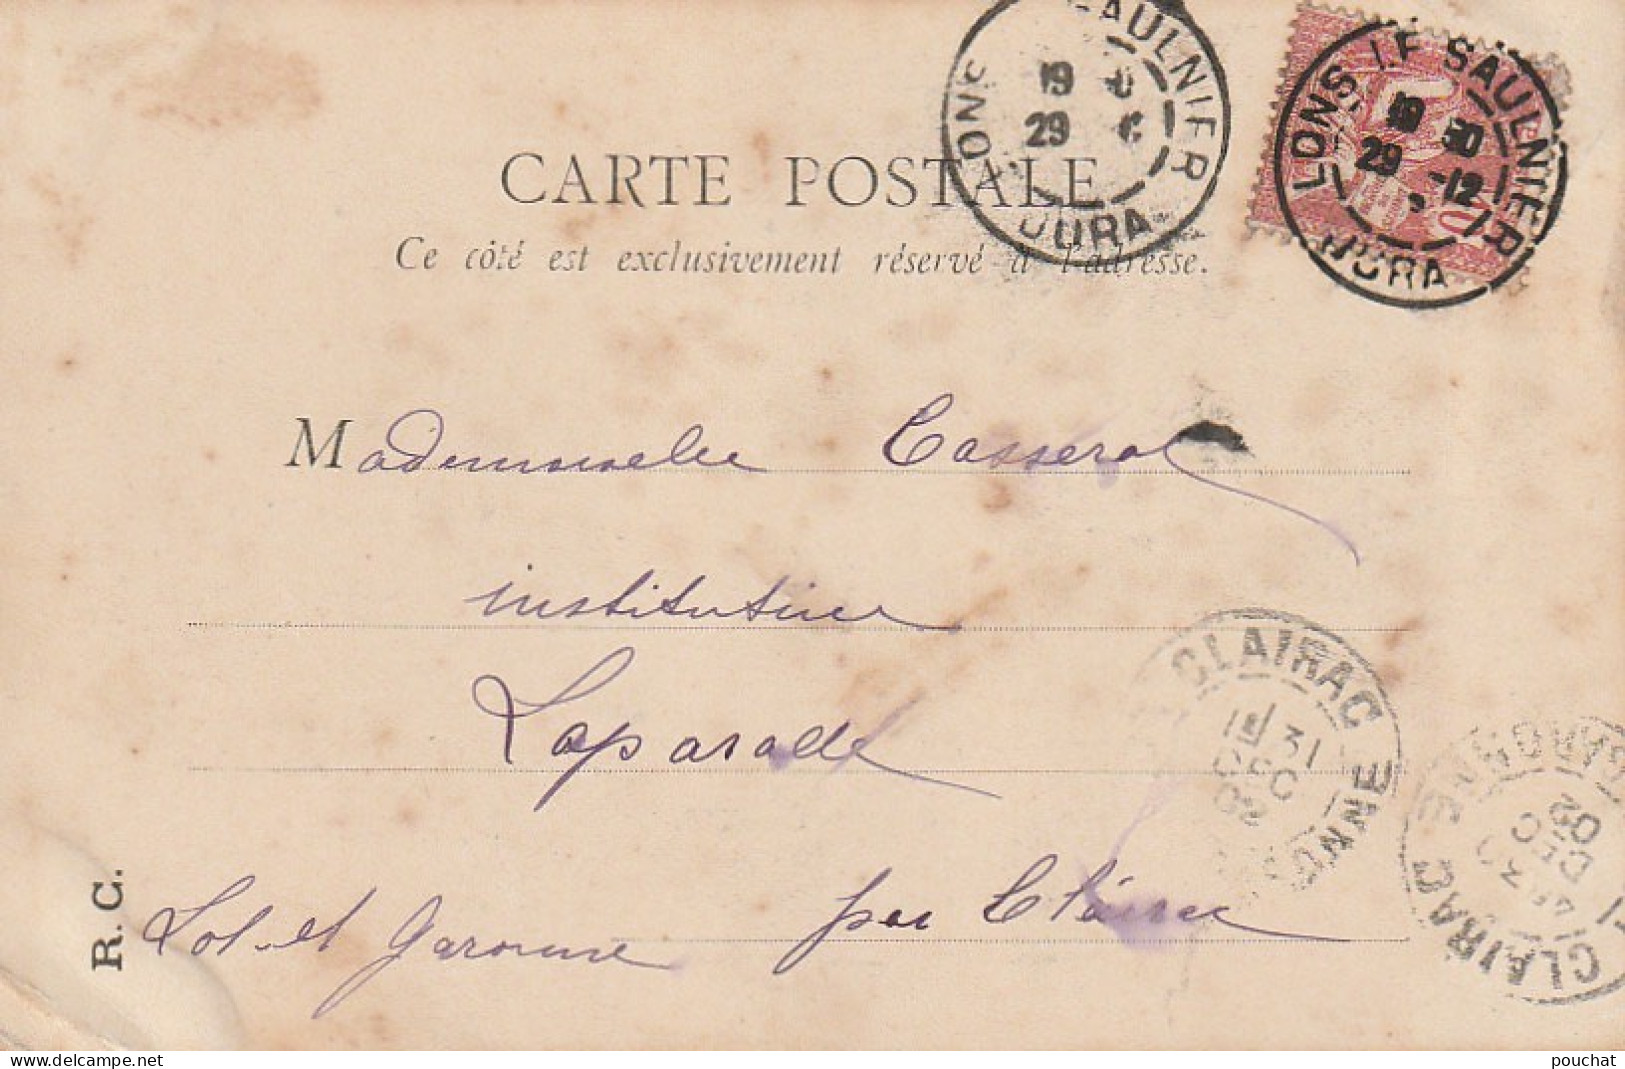 LONS LE SAULNIER
19
29
JURA
LONS LE SAULNIER
19 30
29 -12
JURA
10
CARTE POSTALE
Ce côté est exclusivement réservé à l'adresse.
Mademoiselle Casserol
institutrice
Laparade
Lot-et Garonne par Clairac
R. C.
CLAIRAC
31
DEC
02
CLAIRAC
30
DEC
02
LOT-ET-GARONNE
pouchat